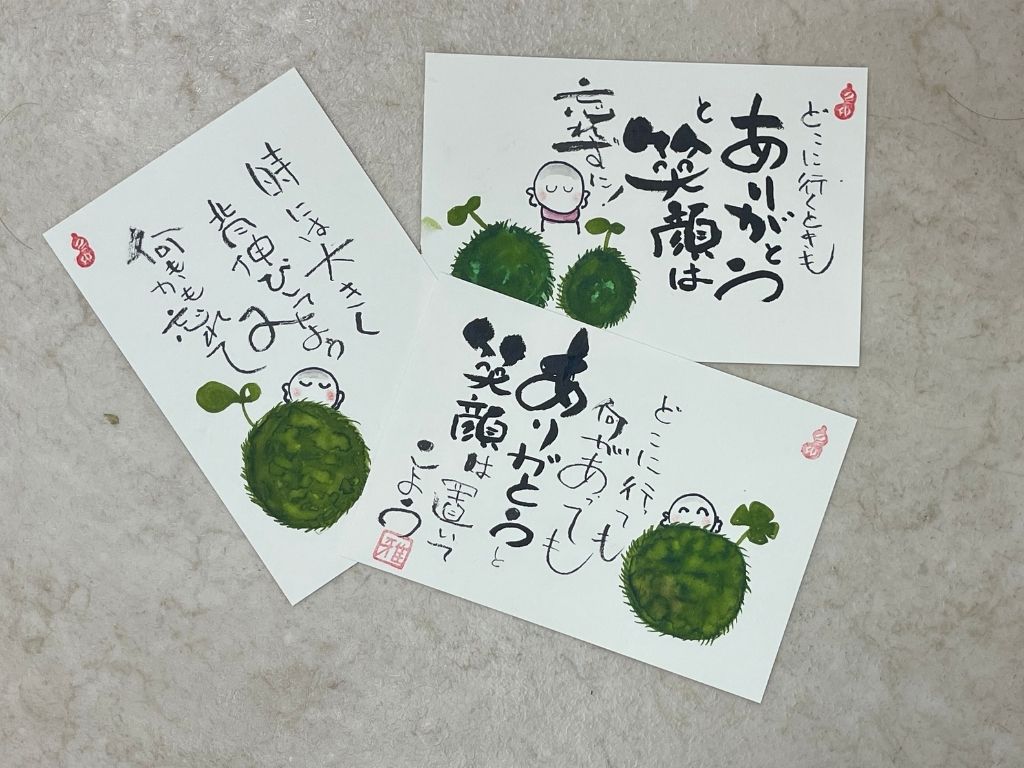 時には大きく
背伸びしてみよう
何もかも忘れて
どこに行くときも
ありがとう
と笑顔は
忘れずに
どこに行っても
何があっても
ありがとうと
笑顔は置いて
こよう
雅